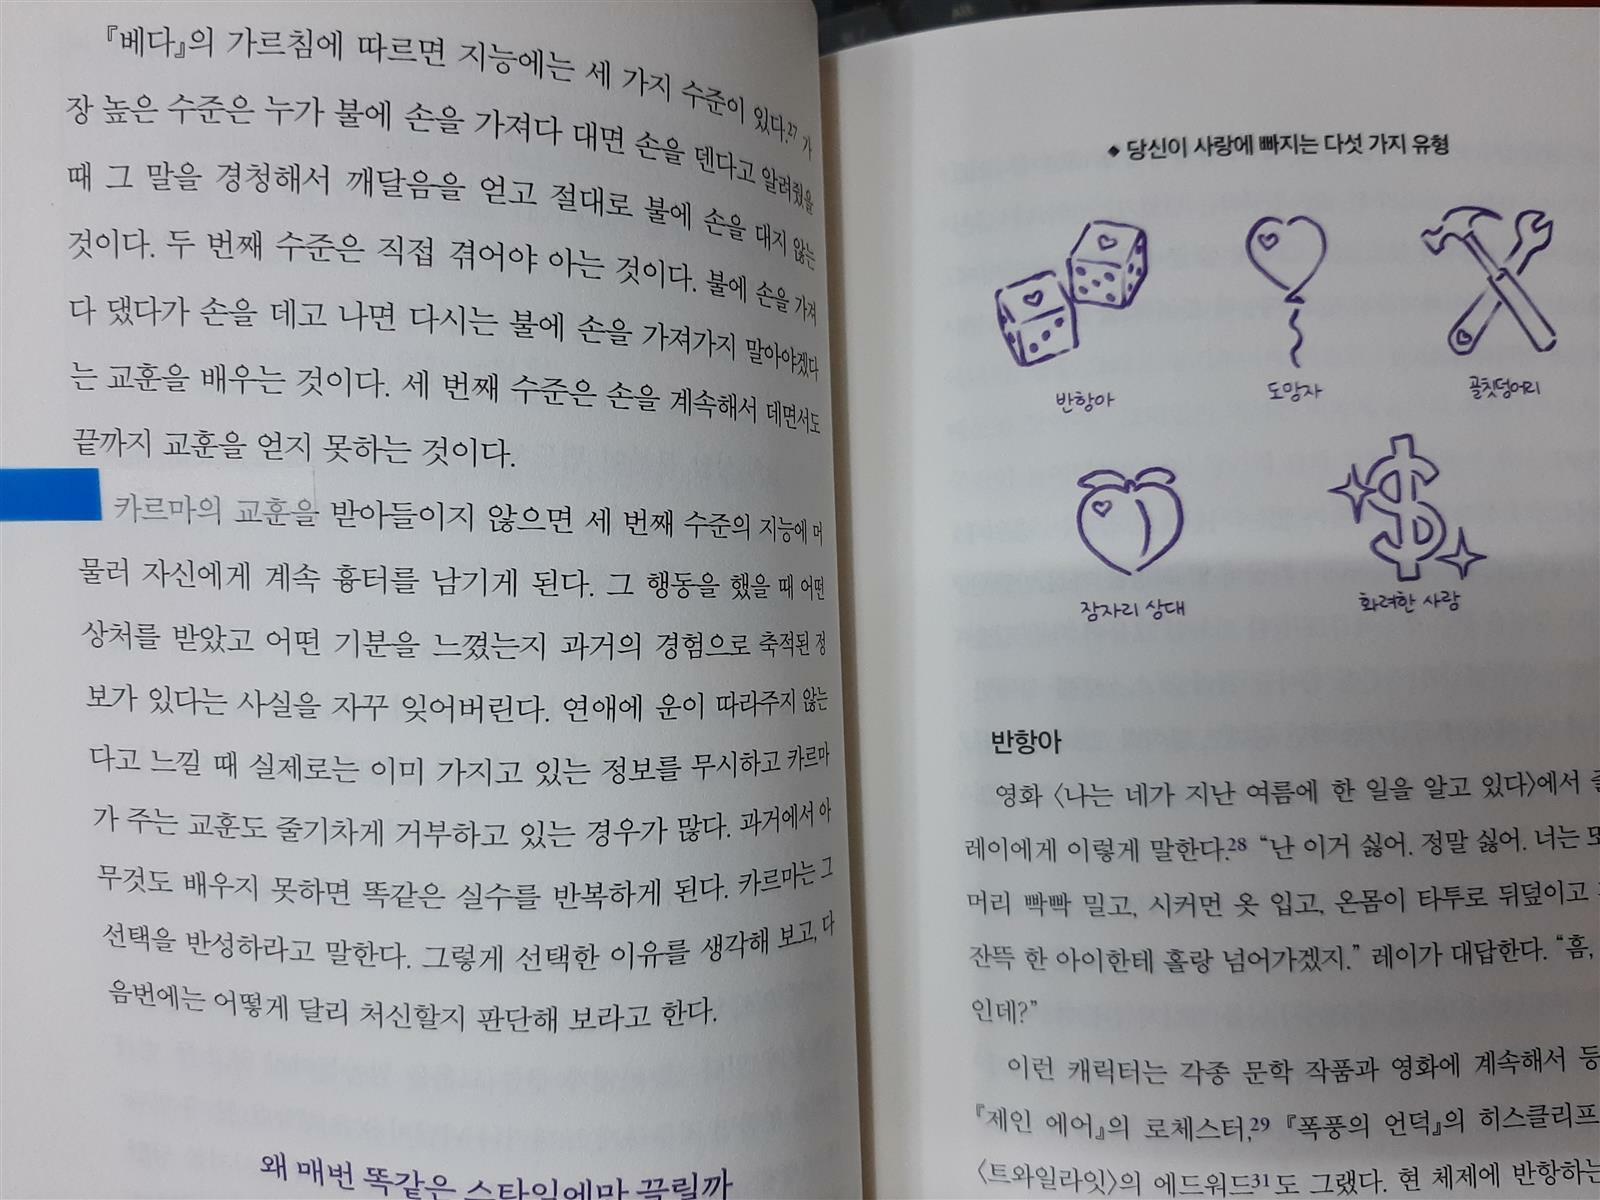 『베다』의 가르침에 따르면 지능에는 세 가지 수준이 있다.27 가
장 높은 수준은 누가 불에 손을 가져다 대면 손을 덴다고 알려줬을
때 그 말을 경청해서 깨달음을 얻고 절대로 불에 손을 대지 않는
것이다. 두 번째 수준은 직접 겪어야 아는 것이다. 불에 손을 가져
다 댔다가 손을 데고 나면 다시는 불에 손을 가져가지 말아야겠다
는 교훈을 배우는 것이다. 세 번째 수준은 손을 계속해서 데면서도
끝까지 교훈을 얻지 못하는 것이다.
카르마의 교훈을 받아들이지 않으면 세 번째 수준의 지능에 머
물러 자신에게 계속 흉터를 남기게 된다. 그 행동을 했을 때 어떤
상처를 받았고 어떤 기분을 느꼈는지 과거의 경험으로 축적된 정
보가 있다는 사실을 자꾸 잊어버린다. 연애에 운이 따라주지 않는
다고 느낄 때 실제로는 이미 가지고 있는 정보를 무시하고 카르마
가 주는 교훈도 줄기차게 거부하고 있는 경우가 많다. 과거에서 아
무것도 배우지 못하면 똑같은 실수를 반복하게 된다. 카르마는 그
선택을 반성하라고 말한다. 그렇게 선택한 이유를 생각해 보고, 다
음번에는 어떻게 달리 처신할지 판단해 보라고 한다.
왜 매번 똑같은 스타일에만 끌릴까
◆ 당신이 사랑에 빠지는 다섯 가지 유형
반항아
도망자
골칫덩어리
잠자리 상대
화려한 사람
반항아
영화 〈나는 네가 지난 여름에 한 일을 알고 있다〉에서
레이에게 이렇게 말한다.28 “난 이거 싫어. 정말 싫어. 너는
머리 빡빡 밀고, 시커먼 옷 입고, 온몸이 타투로 뒤덮이고
잔뜩 한 아이한테 홀랑 넘어가겠지.” 레이가 대답한다. “흠,
인데?”
이런 캐릭터는 각종 문학 작품과 영화에 계속해서
『제인 에어』의 로체스터,29 『폭풍의 언덕』의 히스클리프
〈트와일라잇〉의 에드워드31도 그랬다. 현 체제에 반항하는